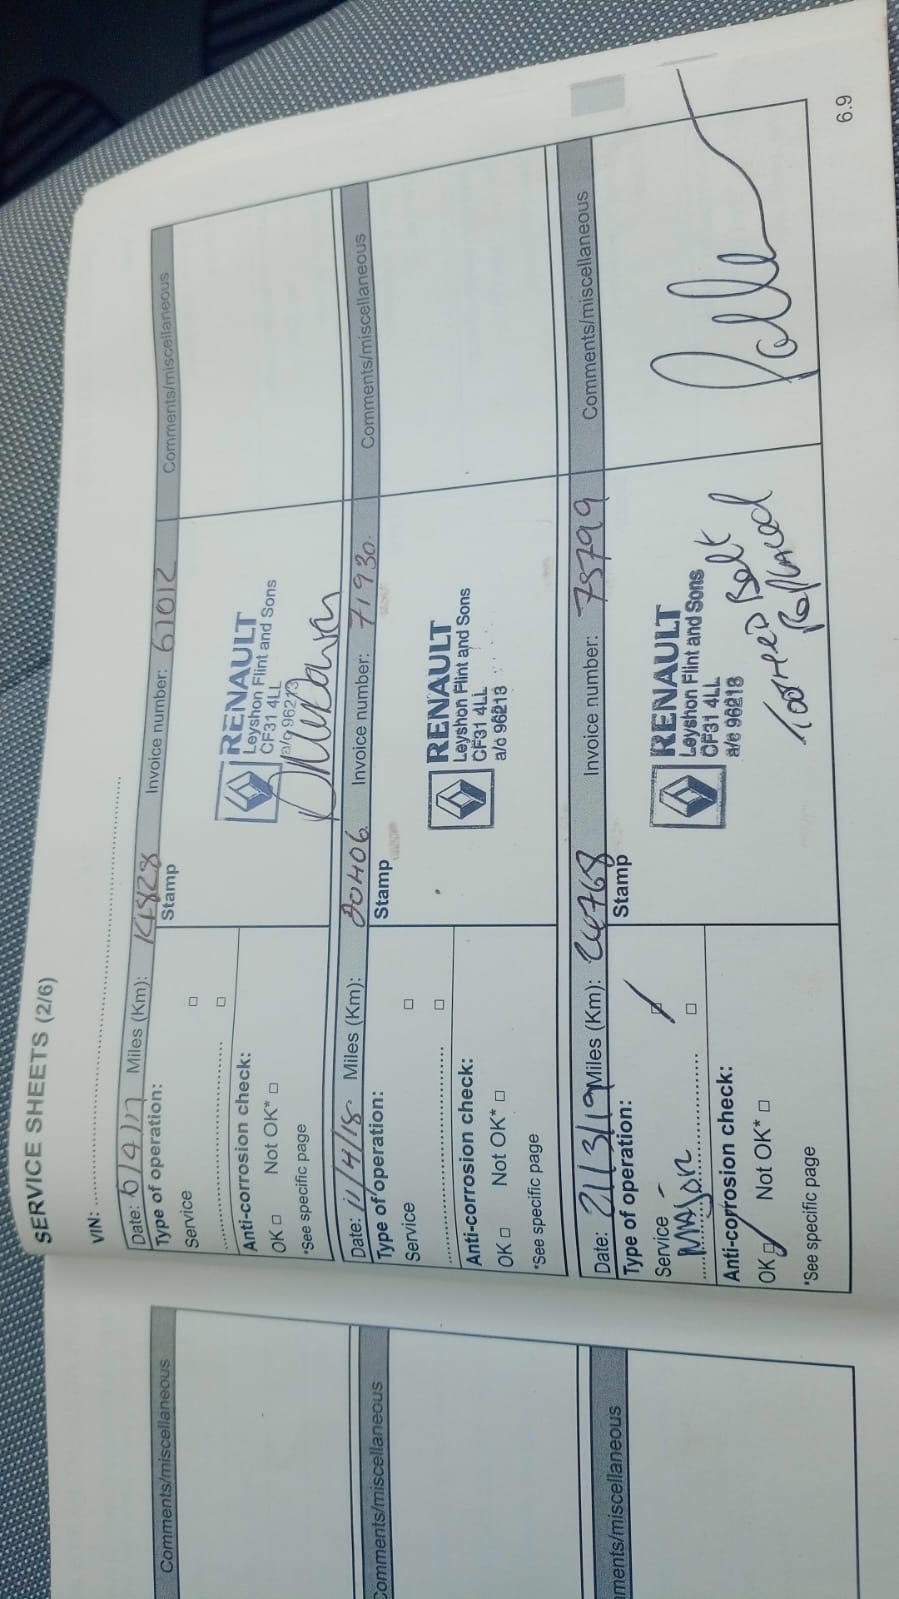 SERVICE SHEETS (2/6)
VIN:
Date: 6/4/17 Miles (Km): 14828 Invoice number: 61012 Comments/miscellaneous
Type of operation: Stamp
Service
RENAULT
Leyshon Flint and Sons
CF31 4LL
a/c 96213
Anti-corrosion check:
OK □ Not OK* □
*See specific page
Date: 11/4/18 Miles (Km): 20406 Invoice number: 71930 Comments/miscellaneous
Type of operation: Stamp
Service
RENAULT
Leyshon Flint and Sons
CF31 4LL
a/c 96213
Anti-corrosion check:
OK □ Not OK* □
*See specific page
Date: 21/3/19 Miles (Km): 24768 Invoice number: 75799 Comments/miscellaneous
Type of operation: Stamp
Service
MAJOR
RENAULT
Leyshon Flint and Sons
CF31 4LL
a/c 96213
TOOTHED Belt
Replaced
Anti-corrosion check:
OK □ Not OK* □
*See specific page
6.9
Comments/miscellaneous
Comments/miscellaneous
ments/miscellaneous